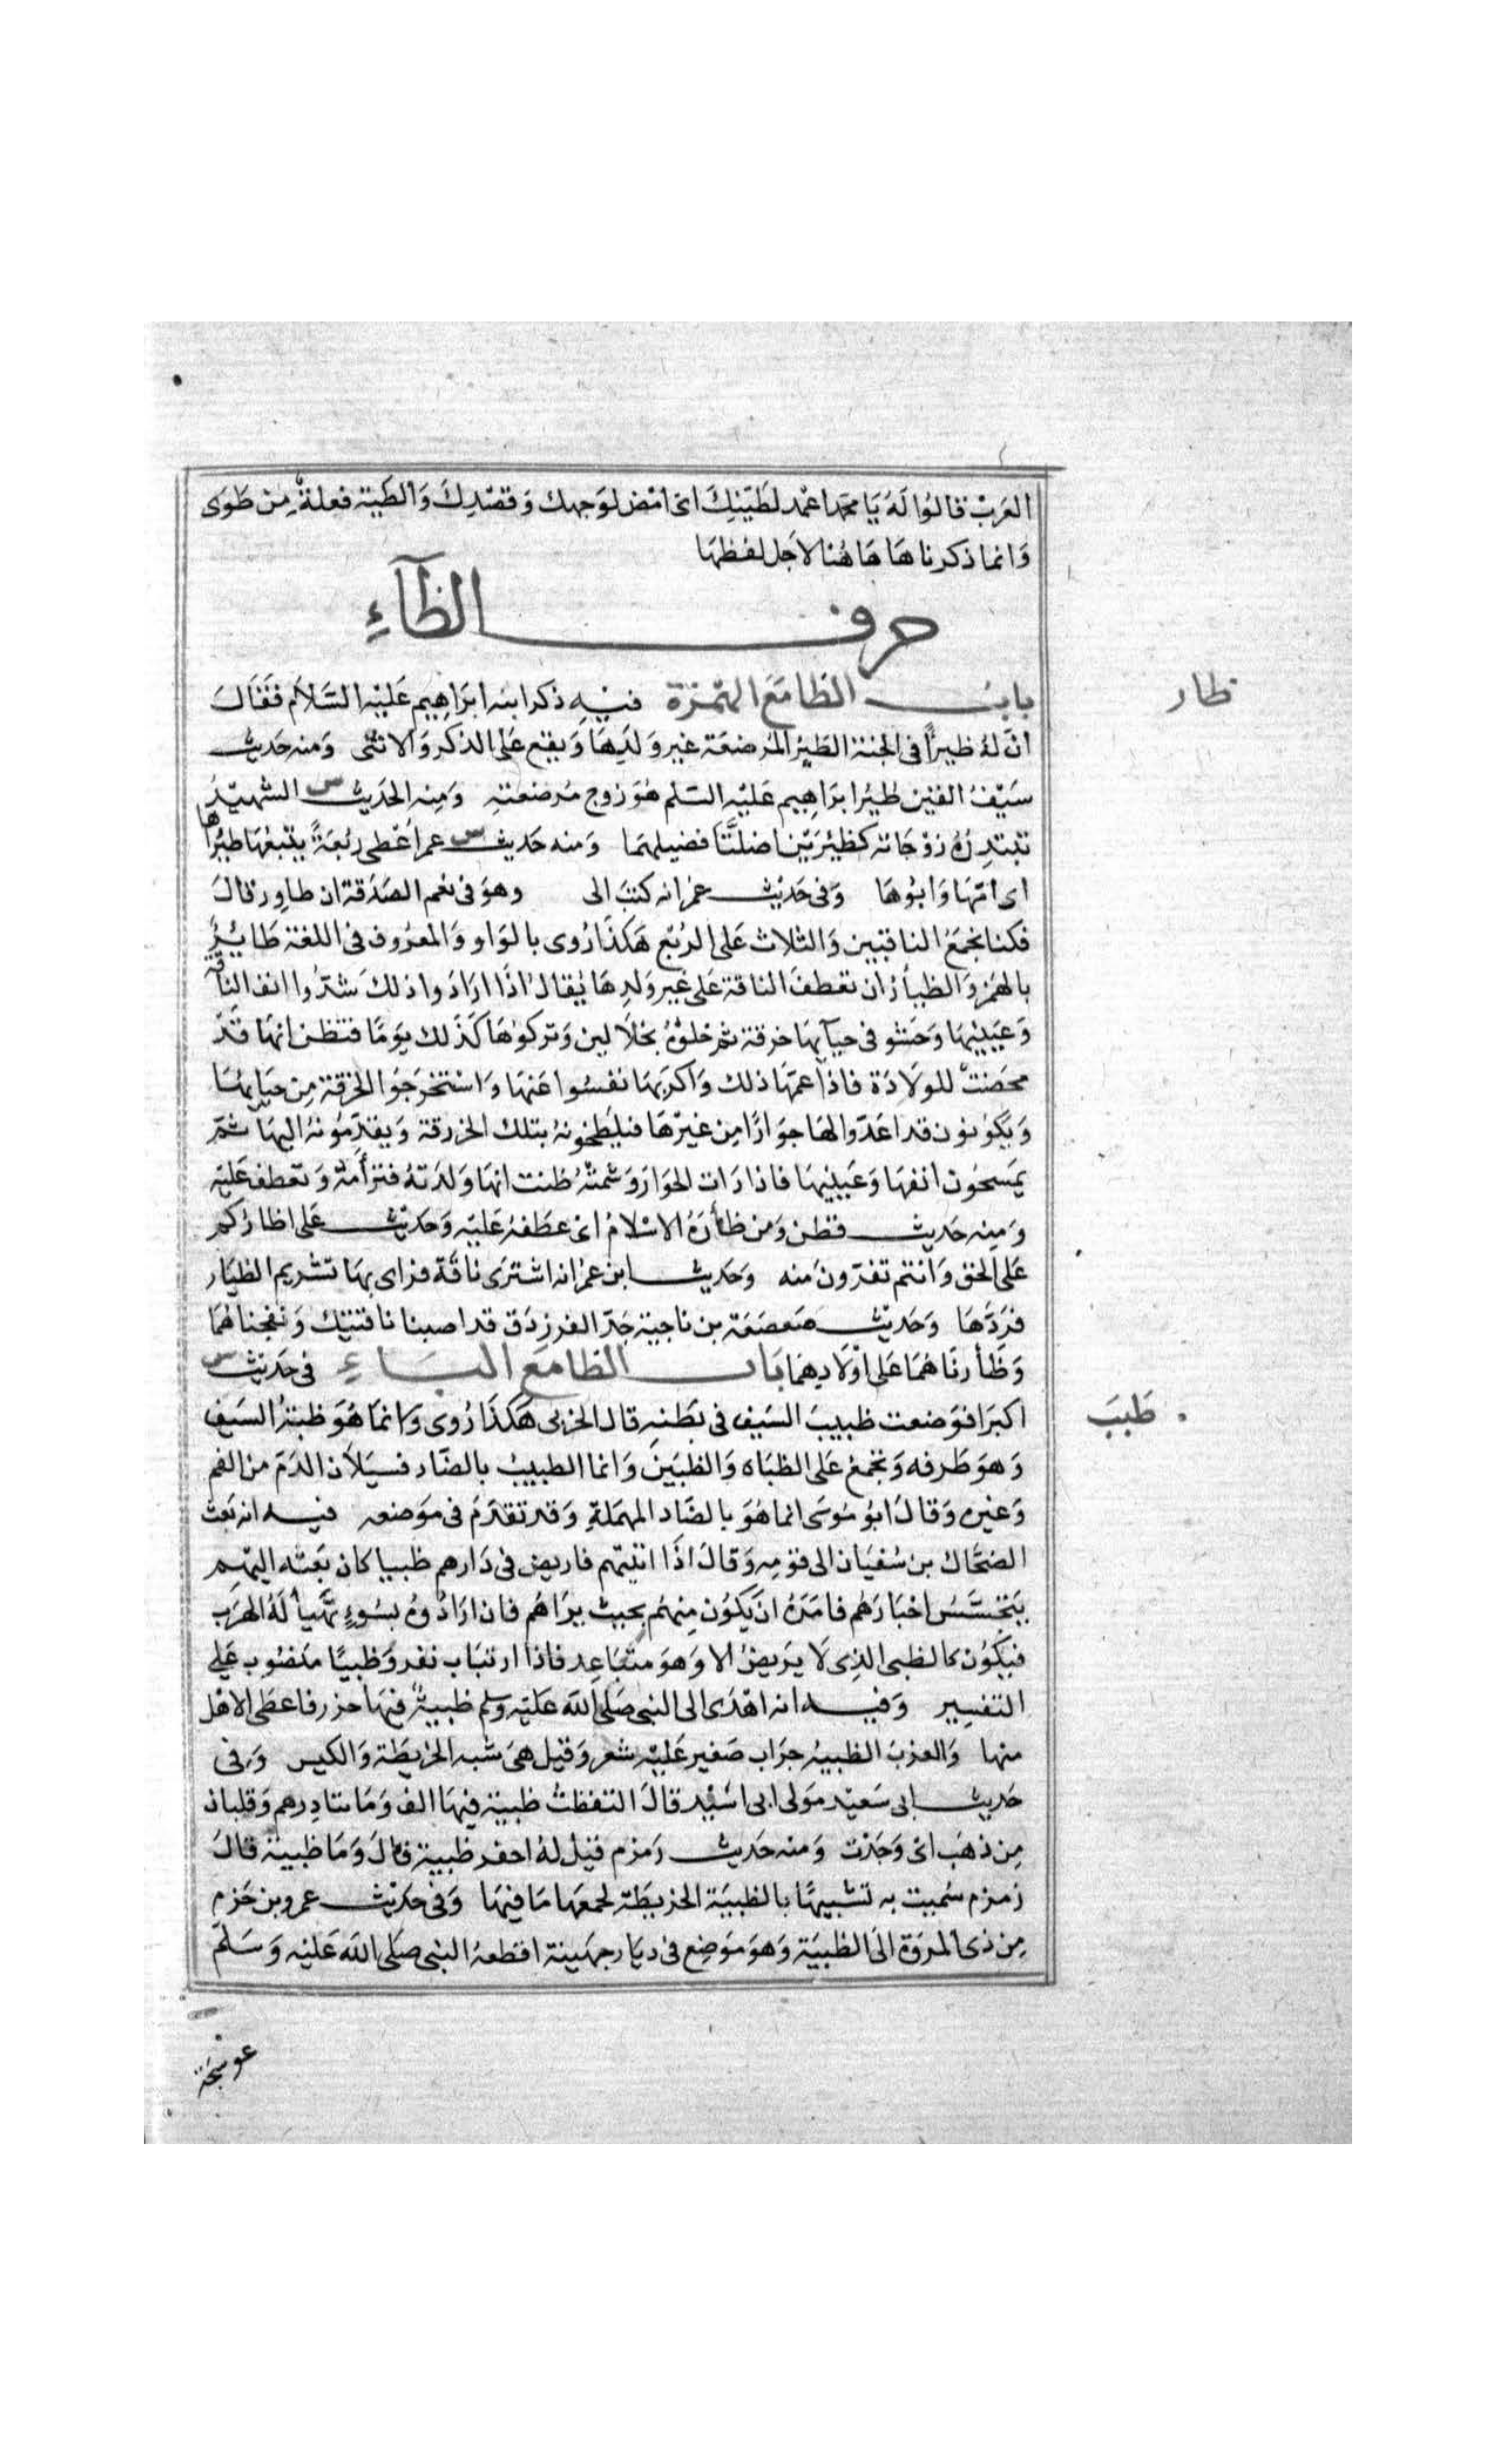 العرب قالوا له يا محمد اعمد لطيتك اى امض لوجهك وقصدك والطية فعلة من طوى
وانما ذكرناها هاهنا لاجل لفظها
حرف الظاء
ظار
باب الظا مع الهمزة فيه ذكر ابنه ابراهيم عليه السلام فقال
ان له ظيرا فى الجنة الظير المرضعة غير ولدها ويقع على الذكر والانثى ومنه حديث
سيف القين ظير ابراهيم عليه السلم هو زوج مرضعته ومنه الحديث س الشهيد
تبتدره زوجاته كظيرين اضلتا فصيلهما ومنه حديث س عمر اعطى ربعة يتبعها ظيراها
اى امها وابوها وفى حديث عمر انه كتب الى وهو فى نعم الصدقة ان ظاور قال
فكنا نجمع الناقتين والثلاث على الربع هكذا روى بالواو والمعروف فى اللغة ظاير
بالهمز والظيأر ان تعطف الناقة على غير ولدها يقال اذا ارادوا ذلك شدوا انف الناقة
وعينيها وحشو فى حيآيها خرقة ثم خلوه بخلالين وتركوها كذلك يوما فتظن انها قد
مخضت للولادة فاذا غمها ذلك واكربها نفسوا عنها واستخرجوا الخرقة من حيايها
ويكونون قد اعدوا لها حوارا من غيرها فيلطخونه بتلك الخرقة ويقدمونه اليها ثم
يمسحون انفها وعينيها فاذا رات الحوار وشمته ظنت انها ولدته فترأمه وتعطف عليه
ومنه حديث قطن ومن ظأره الاسلام اى عطفه عليه وحديث على اظاركم
على الحق وانتم تفرون منه وحديث ابن عمر انه اشترى ناقة فراى بها تشريم الظيار
فردها وحديث صعصعة بن ناجية جد الفرزدق قد اصبنا ناقتيك ونتجناهما
وظأرناهما على اولادهما باب الظا مع الباء فى حديث س
ظبب
اكبرا فوضعت ظبيب السيف فى بطنه قال الحربى هكذا روى وانما هو ظبة السيف
وهو طرفه وتجمع على الظباه والظبين وانما الظبيب بالضاد فسيلان الدم من الفم
وغيره وقال ابو موسى انما هو بالصاد المهملة وقد تقدم فى موضعه فيه انه بعث
الضحاك بن سفيان الى قومه وقال اذا اتيتهم فاربض فى دارهم ظبيا كان بعثه اليهم
يتجسس اخبارهم فامره ان يكون منهم بحيث يراهم فان ارادوه بسوء تهيأ له الهرب
فيكون كالظبى الذى لا يربض الا وهو متباعد فاذا ارتاب نفر وظبيا منصوب على
التفسير وفيه انه اهدى الى النبى صلى الله عليه وسلم ظبية فيها خرز فاعطى الاهل
منها والعزب الظبية جراب صغير عليه شعر وقيل هى شبه الخريطة والكيس وفى
حديث ابى سعيد مولى ابى اسيد قال التقطت ظبية فيها الف ومائتا درهم وقلبان
من ذهب اى وجدت ومنه حديث زمزم قيل له احفر ظبية قال وما ظبية قال
زمزم سميت به تشبيها بالظبية الخريطة لجمعها ما فيها وفى حديث عمرو بن حزم
من ذى المروة الى الظبية وهو موضع فى ديار جهينة اقطعه النبى صلى الله عليه وسلم
عوسجة